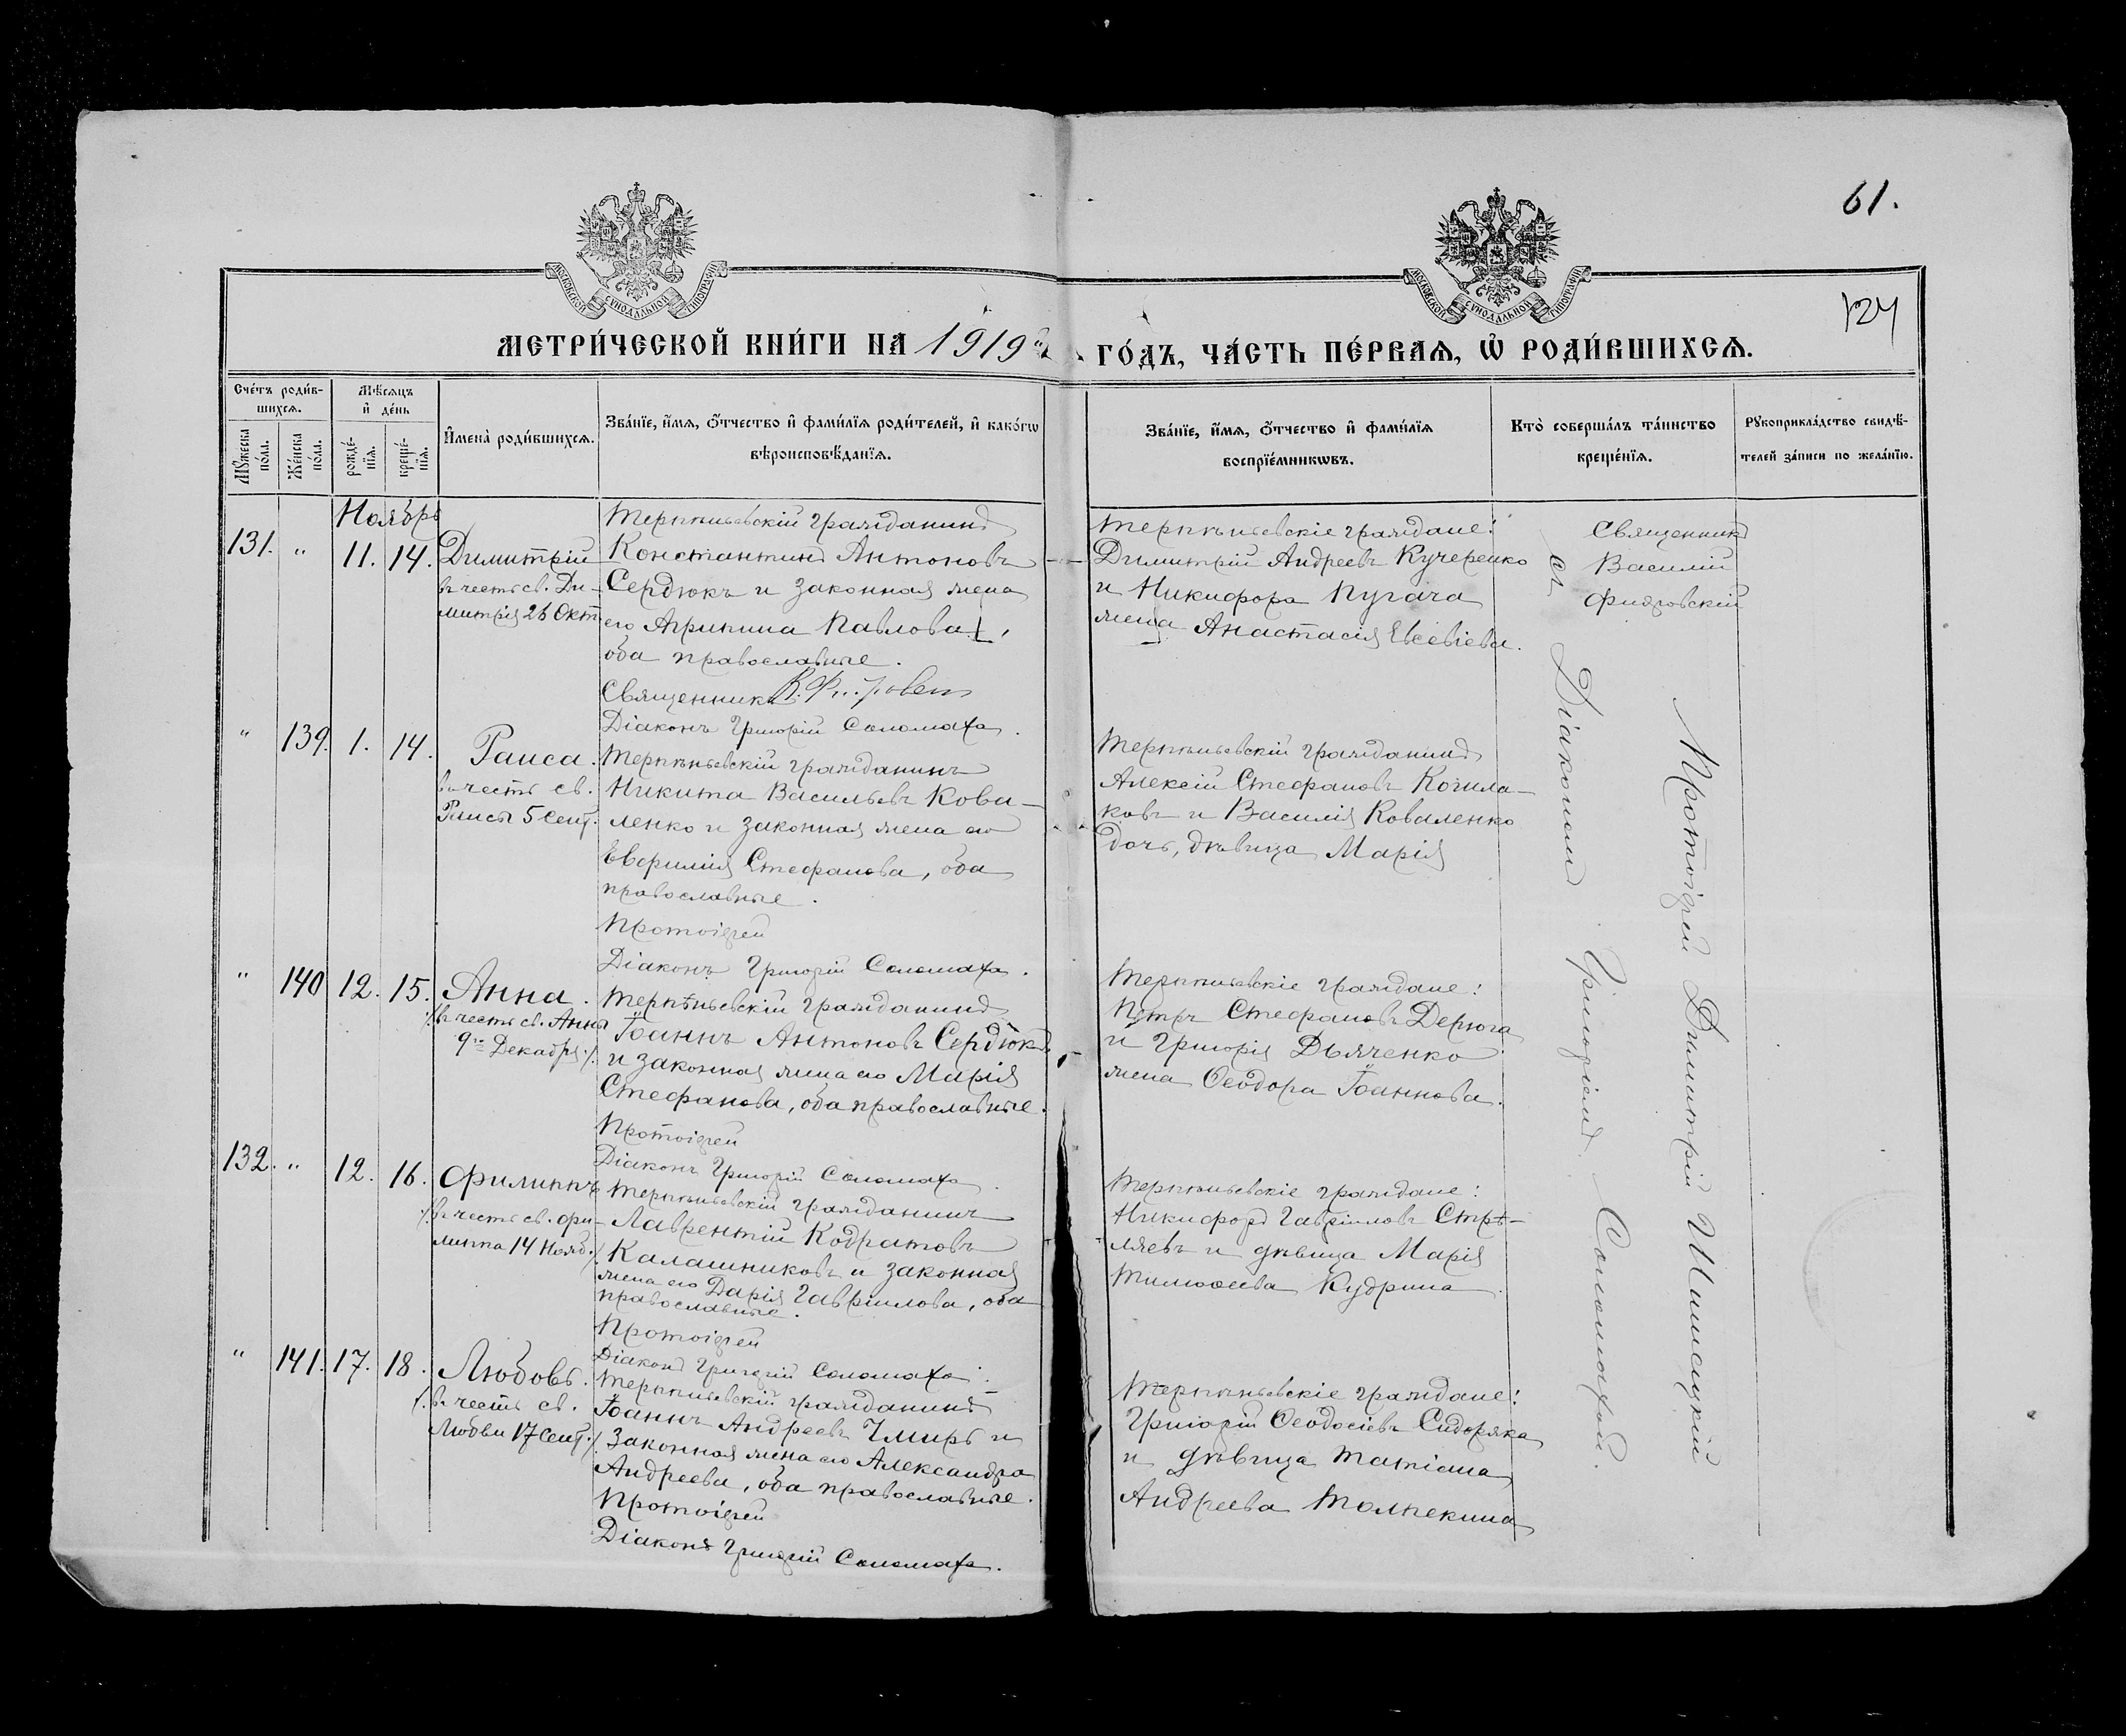 61.
124
МОСКОВСКОЙ СУНОДАЛЬНОЙ ТИПОГРАФІИ
МОСКОВСКОЙ СУНОДАЛЬНОЙ ТИПОГРАФІИ
МЕТРИ́ЧЕСКОЙ КНИ́ГИ НА 1919 ГО́ДЪ, ЧА́СТЬ ПЕ́РВАѦ, Ѡ҆ РОДИ́ВШИХСѦ.
Сче́тъ роди́в-
шихсѧ.
Мѣ́сѧцъ
и҆ де́нь
Мꙋ́жеска
по́ла.
Же́нска
по́ла.
рожде́-
нїѧ.
креще́-
нїѧ.
И҆мена̀ роди́вшихсѧ.
Зва́нїе, и҆́мѧ, ѻ҆́тчество и҆ фами́лїѧ роди́телей, и҆ како́гѡ
вѣроисповѣ́данїѧ.
Зва́нїе, и҆́мѧ, ѻ҆́тчество и҆ фами́лїѧ
воспрїе́мникѡвъ.
Кто̀ соверша́лъ та́инство
креще́нїѧ.
Рꙋкоприкла́дство свидѣ́-
телей за́писи по жела́нїю.
Ноябрь
131. „ 11. 14. Димитрій
въ честь св. Ди-
митрія 26 Окт.
Терпѣньевскій гражданинъ
Константинъ Антоновъ
Сердюкъ и законная жена
его Агрипина Павлова,
оба православные.
Священникъ
Діаконъ Григорій Соломаха.
Терпѣньевскіе граждане:
Димитрій Андреевъ Кучеренко
и Никифора Пугача
жена Анастасія Евсевіева.
Священникъ
Василій
съ Діакономъ Григоріемъ Соломахой.
Протоіерей Димитрій
„ 139. 1. 14. Раиса.
въ честь св.
Раисы 5 Сент.
Терпѣньевскій гражданинъ
Никита Васильевъ Кова-
ленко и законная жена его
Евфимія Стефанова, оба
православные.
Протоіерей
Діаконъ Григорій Соломаха.
Терпѣньевскій гражданинъ
Алексій Стефановъ
и Василія Коваленко
дочь, дѣвица Марія
„ 140 12. 15. Анна.
/въ честь св. Анны
9го Декабря./
Терпѣньевскій гражданинъ
Іоаннъ Антоновъ Сердюкъ
и законная жена его Марія
Стефанова, оба православные.
Протоіерей
Діаконъ Григорій Соломаха.
Терпѣньевскіе граждане:
Петръ Стефановъ Дерюга
и Григорія Дьяченко
жена Ѳеодора Іоаннова.
132. „ 12. 16. Филиппъ
/въ честь св. Фи-
липпа 14 Нояб./
Терпѣньевскій гражданинъ
Лаврентій Кодратовъ
Калашниковъ и законная
жена его Дарія Гавріилова, оба
православные.
Протоіерей
Діаконъ Григорій Соломаха.
Терпѣньевскіе граждане:
Никифоръ Гавріиловъ Стрѣ-
ляевъ и дѣвица Марія
Тимоѳеева Кудрина.
„ 141. 17. 18. Любовь.
/въ честь св.
Любви 17 Сент./
Терпѣньевскій гражданинъ
Іоаннъ Андреевъ Чмирь и
законная жена его Александра
Андреева, оба православные.
Протоіерей
Діаконъ Григорій Соломаха.
Терпѣньевскіе граждане:
Григорій Ѳеодосіевъ Сидоряка
и дѣвица Татіана
Андреева Толпекина